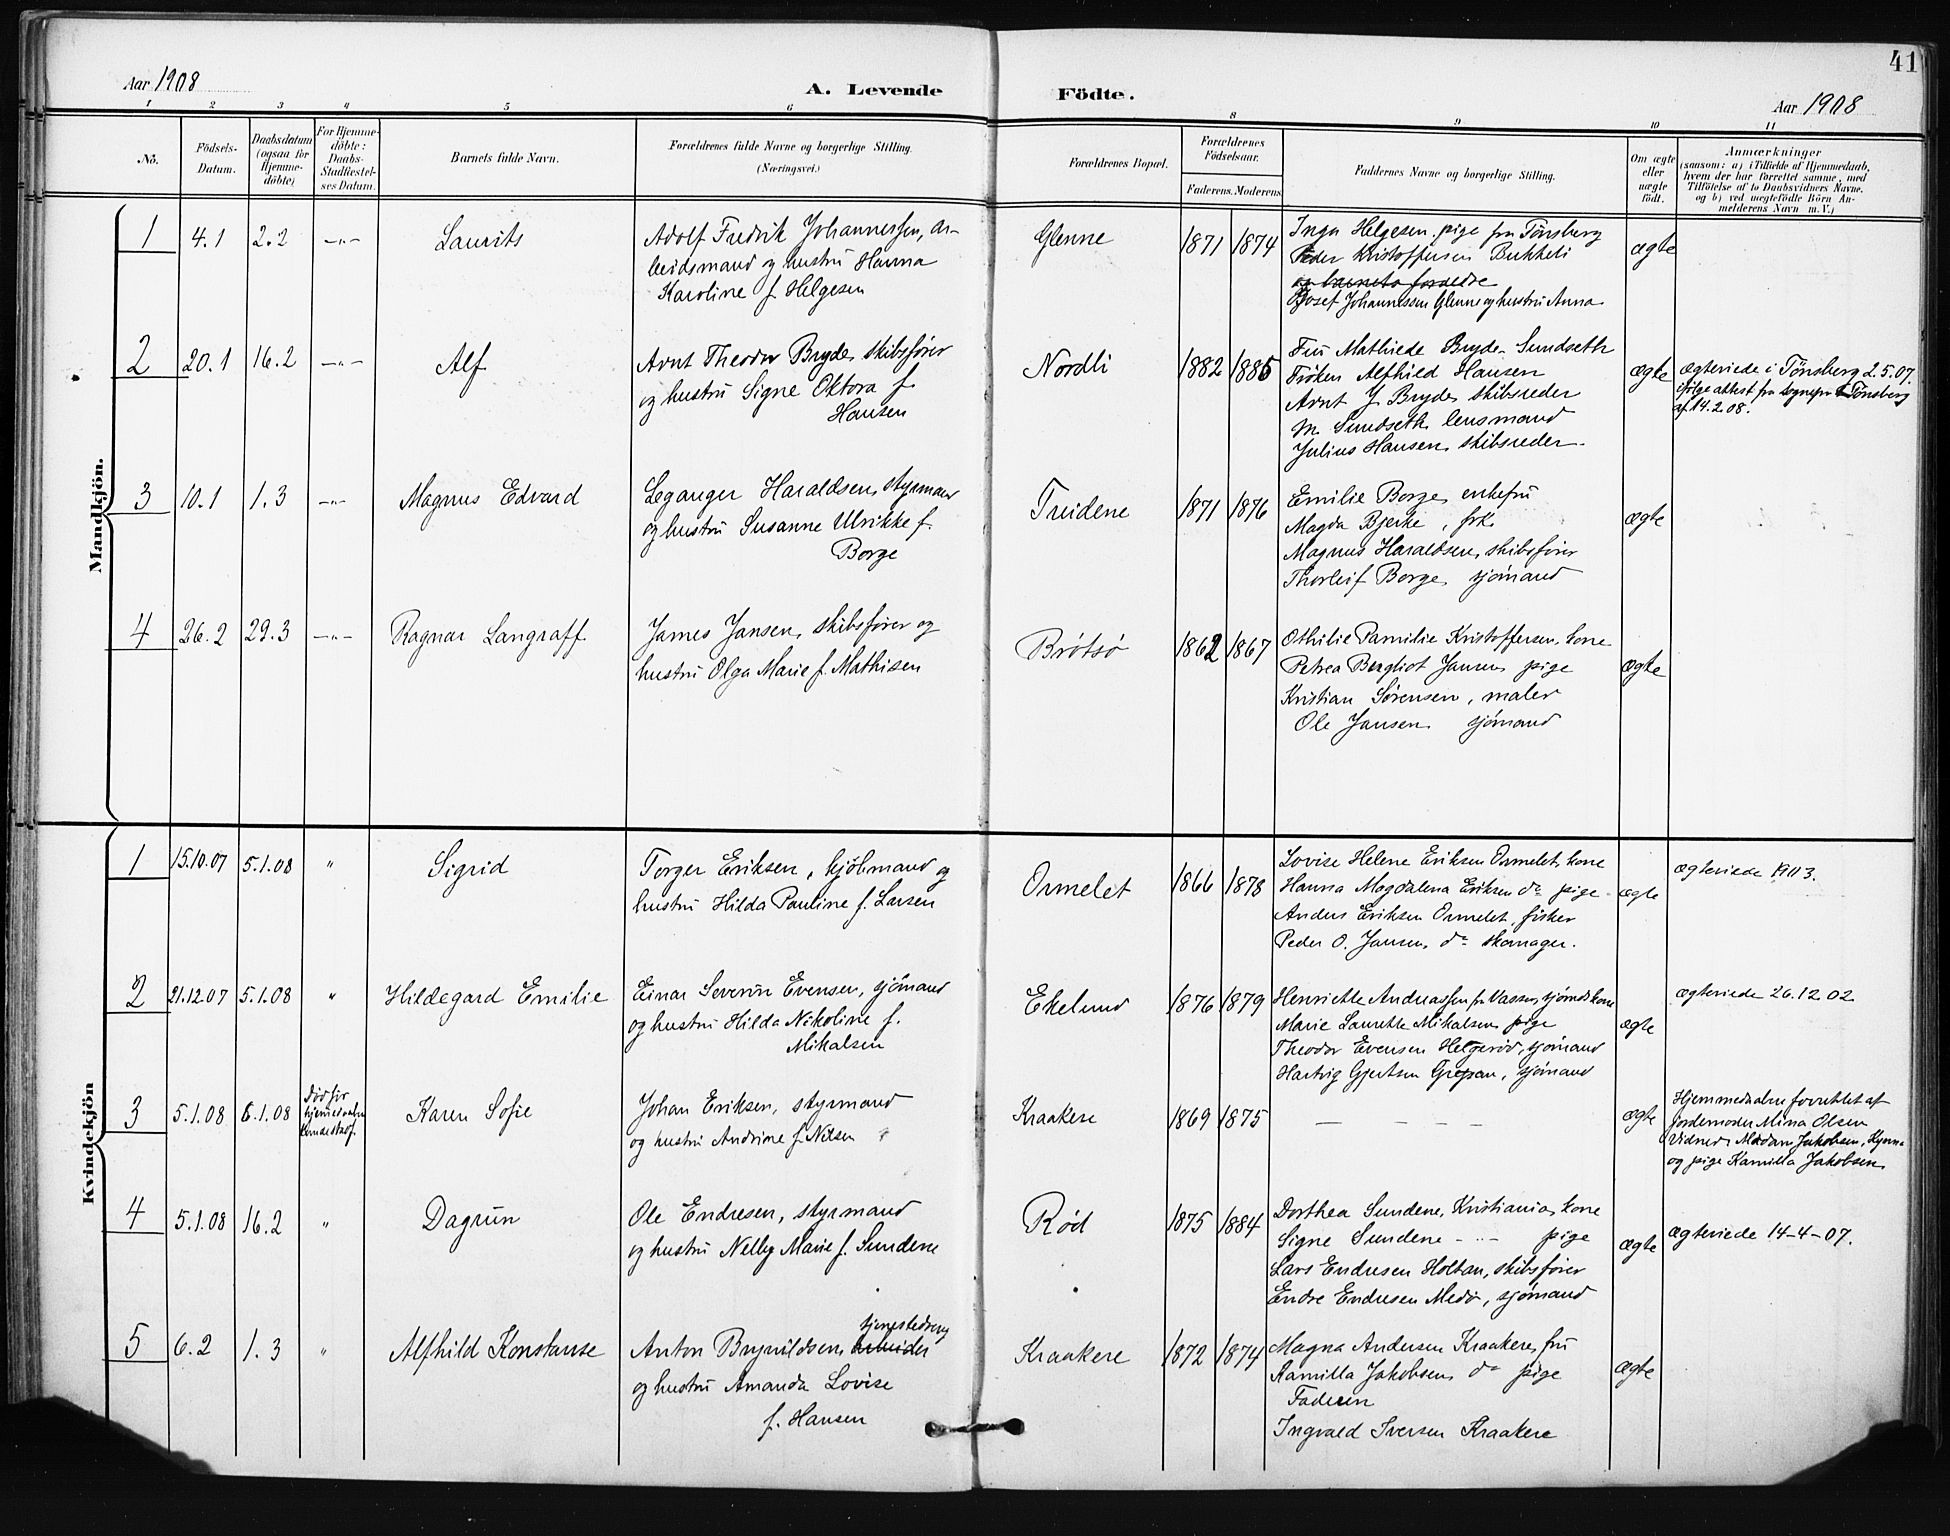 41
Aar 1908
A. Levende
Födte.
Aar 1908
1 2 3 4 5 6 8 9 10 11
No.
Födsels-
Datum.
Daabsdatum
(ogsaa for
Hjemme-
döbte)
For Hjemme-
döbte:
Daabs-
Stadfæstel-
ses Datum.
Barnets fulde Navn.
Forældrenes fulde Navne og borgerlige Stilling.
(Næringsvei.)
Forældrenes Bopæl.
Forældrenes
Födselsaar.
Faderens. Moderens.
Faddernes Navne og borgerlige Stilling.
Om ægte
eller
uægte
födt.
Anmærkninger
(saasom: a) i Tilfælde af Hjemmedaab,
hvem der har forrettet samme, med
Tilföielse af to Daabsvidners Navne.
og b) ved uægtefödte Börn An-
melderens Navn m. V.)
Mandkjön.
1 4.1 2.2 -"- Laurits
Adolf Fredrik Johannessen, ar-
beidsmand og hustru Hanna
Karoline f. Helgesen
Glenne 1871 1874
Inga Helgesen pige fra Tönsberg
Peder Kristoffersen Bukkeli
og barnets forældre
Josef Johannessen Glenne og hustru Anna
ægte
2 20.1 16.2 -"- Alf
Arnt Theodor Bryde, skibsfører
og hustru Signe Oktora f.
Hansen
Nordli 1882 1885
Fru Mathilde Bryde Sundseth
Frøken Alfhild Hansen
Arnt J Bryde skibsreder
M. Sundseth lensmand
Julius Hansen, skibsreder
ægte
ægteviede i Tönsberg 2.5.07.
ifølge attest fra sognepr i Tönsberg
af 14.2.08.
3 10.1 1.3 -"- Magnus Edvard
Leganger Haraldsen, styrmand
og hustru Susanne Ulrikke f.
Borge
Tveidene 1871 1876
Emilie Borge, enkefru
Magda Bjerke, frk.
Magnus Haraldsen, skibsfører
Thorleif Borge, sjömand
ægte
4 26.2 29.3 -"- Ragnar Langraff
James Jansen, skibsfører og
hustru Olga Marie f. Mathisen
Brøtsø 1862 1867
Othilie Pamilie Kristoffersen, kone
Petrea Bergliot Jansen pige
Kristian Sørensen, maler
Ole Jansen sjömand
ægte
Kvindekjön
1 15.10.07 5.1.08 " Sigrid
Torger Eriksen, kjöbmand og
hustru Hilda Pauline f. Larsen
Ormelet 1866 1878
Lovise Helene Eriksen Ormelet, kone
Hanna Magdalena Eriksen do pige
Anders Eriksen Ormelet, fisker
Peder O. Jansen, do skomager.
ægte
ægteviede 1903.
2 21.12.07 5.1.08 " Hildegard Emilie
Einar Severin Evensen, sjömand
og hustru Hilda Nikoline f.
Mikalsen
Ekelund 1876 1879
Henriette Andreassen fr Vassen, sjömds kone
Marie Laurette Mikalsen pige
Theodor Evensen Helgerød, sjömand
Hartvig Gjertsen Grepan, sjömand
ægte
ægteviede 26.12 02
3 5.1.08 6.1.08
Död før
hjemmedaaben
Karen Sofie
Johan Eriksen, styrmand
og hustru Andrine f. Nilsen
Kraakere 1869 1875
- - - -
ægte
Hjemmedaaben forrettet af
jordemoder Mina Olsen
Vidner, Madam Jakobsen,
og pige Kamilla Jakobsen
4 5.1.08 16.2 " Dagrun
Ole Endresen, styrmand
og hustru Nelly Marie f. Sundene
Rød 1875 1884
Dorthea Sundene, Kristiania, kone
Signe Sundene -"- pige
Lars Endresen Holtan, skibsfører
Endre Endresen Medø, sjömand
ægte
ægteviede 14-4-07.
5 6.2 1.3 " Alfhild Konstanse
Anton Brynildsen, arbeider
og hustru Amanda Lovise
f. Hansen
Kraakere 1872 1874
Magna Andersen Kraakere, fru
Kamilla Jakobsen, do pige
Faderen
Ingvald Iversen Kraakere
ægte